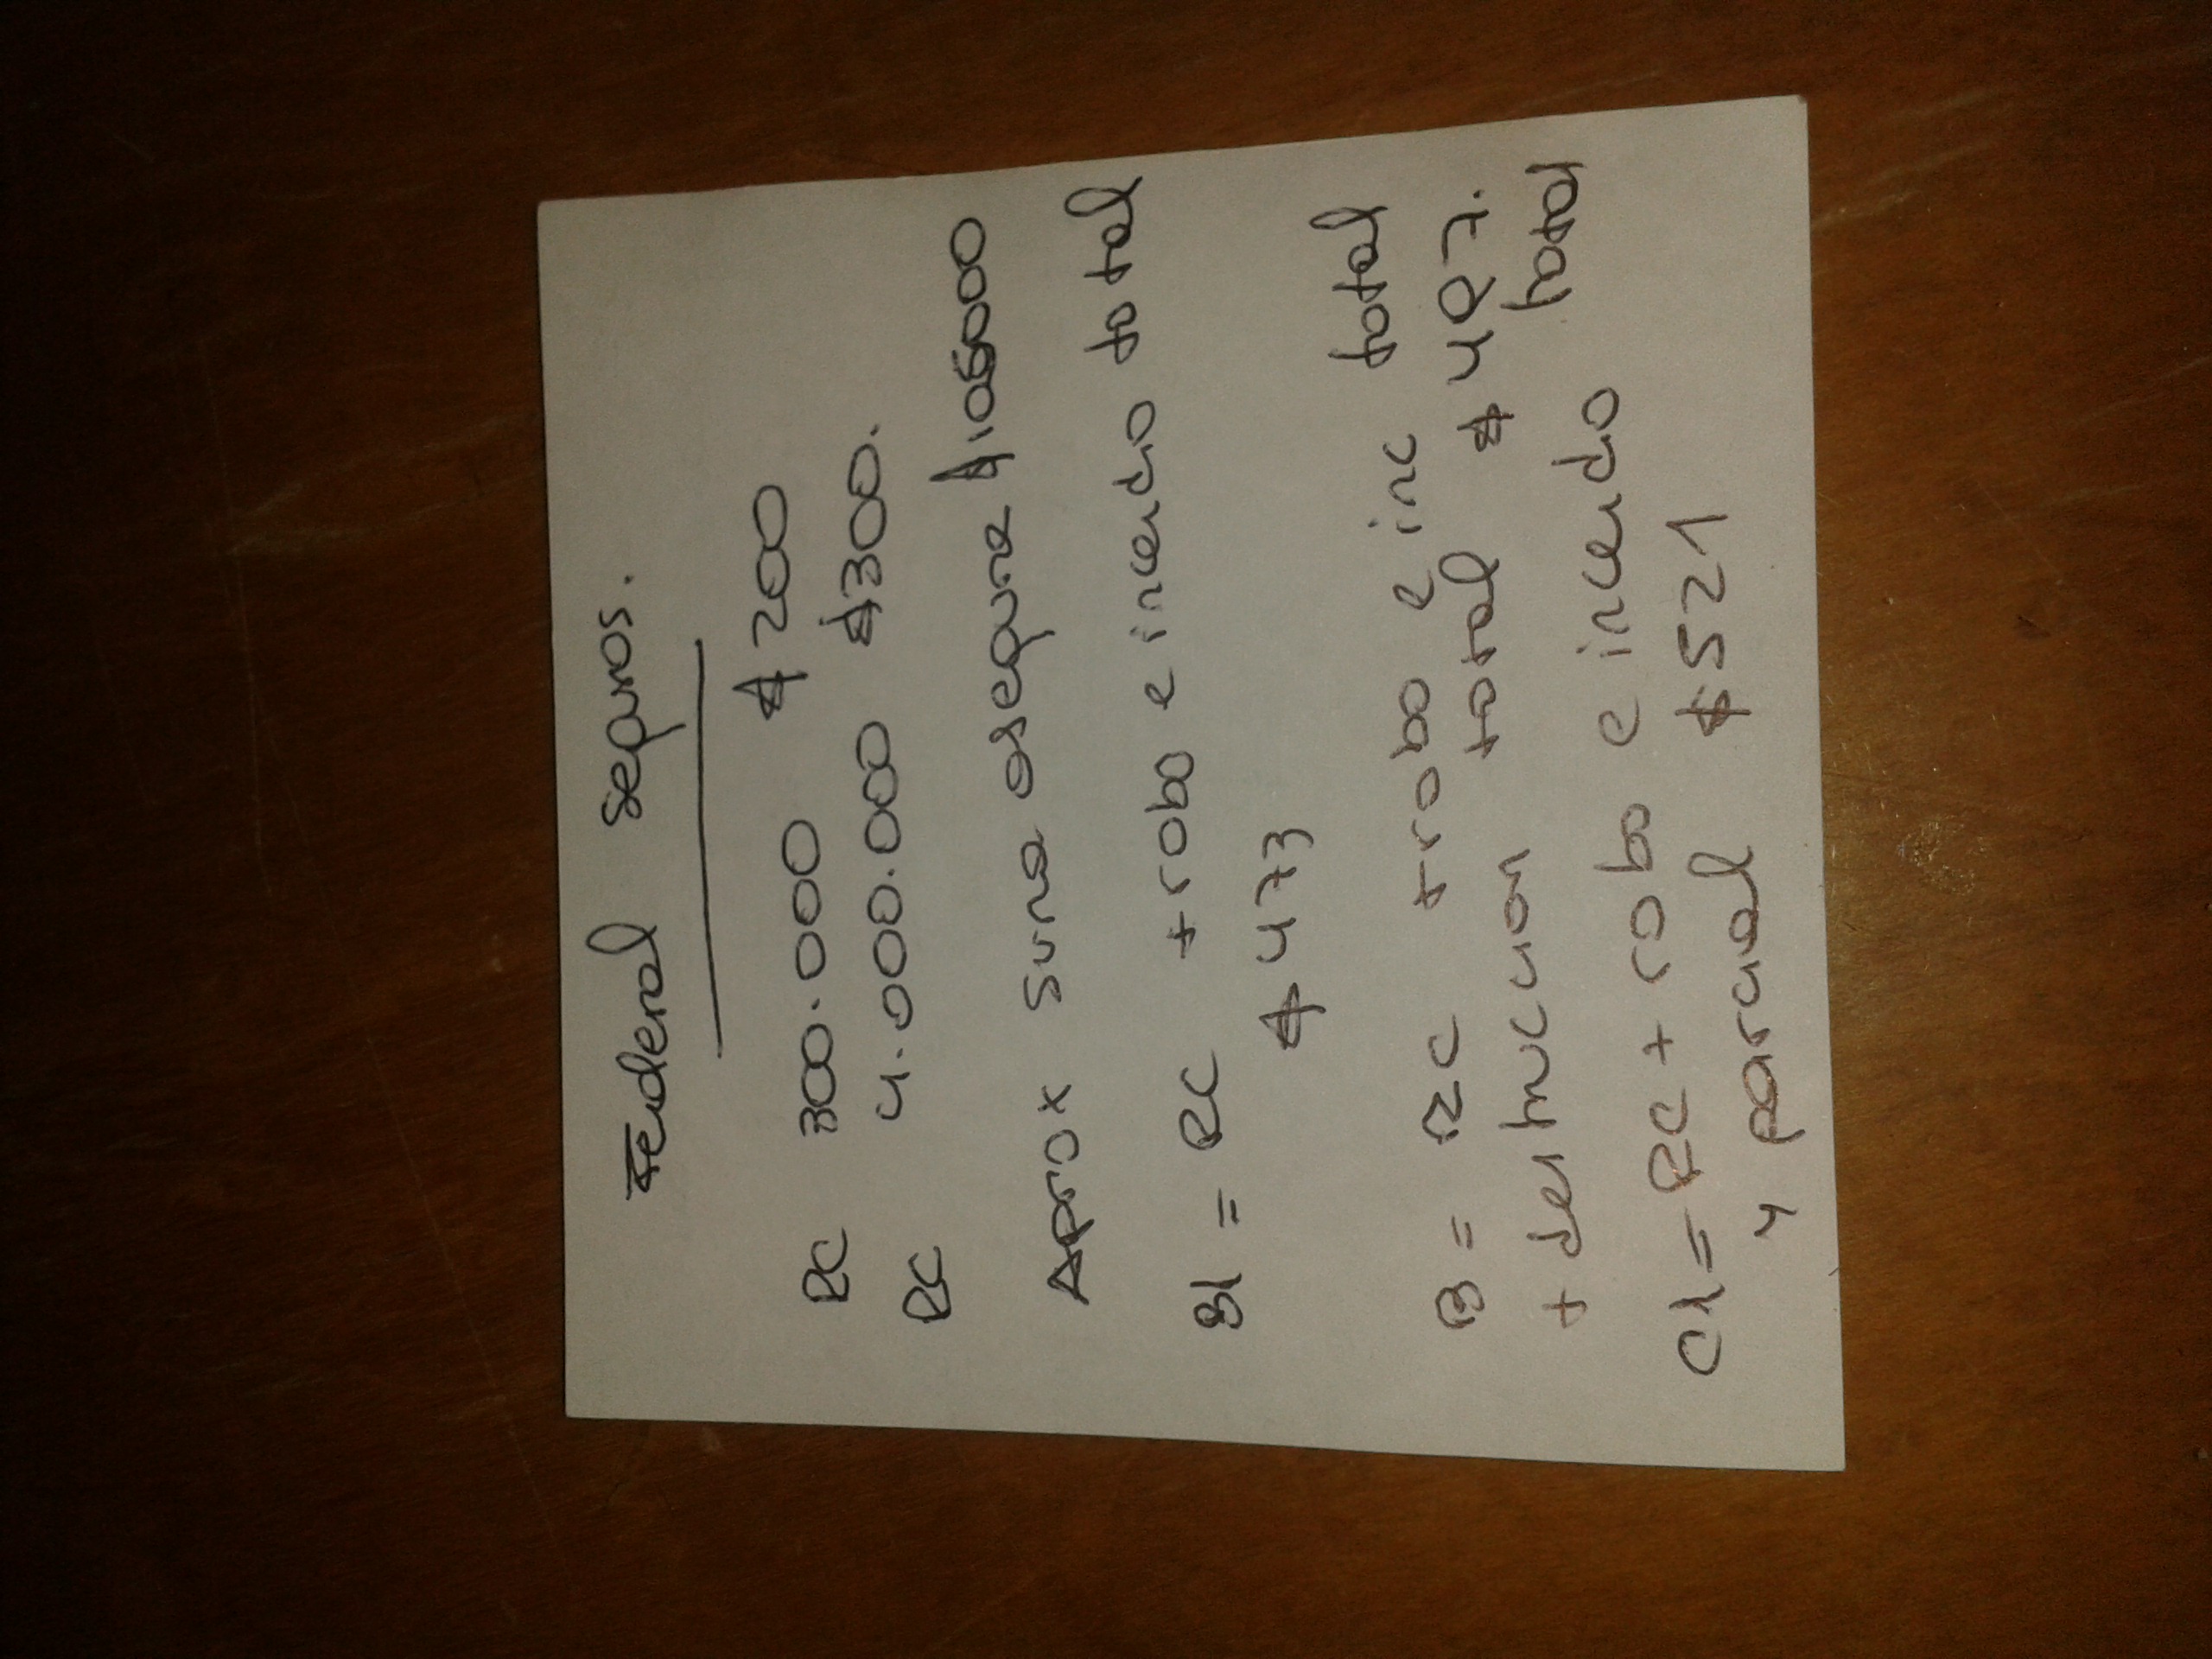 Federal Seguros.
RC 300.000 $200
RC 4.000.000 $300.
Aprox suma asegura $105000
B1 = RC + robo e incendio total
$473
B = RC + robo e inc total
+ destruccion total $497.
C1 = RC + robo e incendio total
y parcial $521